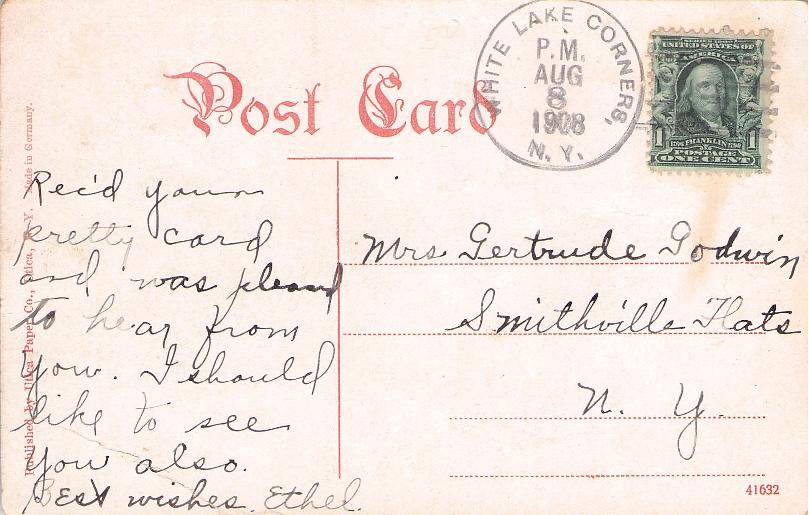 WHITE LAKE CORNERS,
P.M.
AUG
8
1908
N. Y.
SERIES 1902
UNITED STATES OF
AMERICA
1706 FRANKLIN 1790
1 POSTAGE 1
ONE CENT
Post Card
Made in Germany.
Published by Utica Paper Co., Utica, N.Y.
Rec'd your
pretty card
and was pleased
to hear from
you. I should
like to see
you also.
Best wishes. Ethel.
Mrs Gertrude Godwin
Smithville Flats
N. Y.
41632